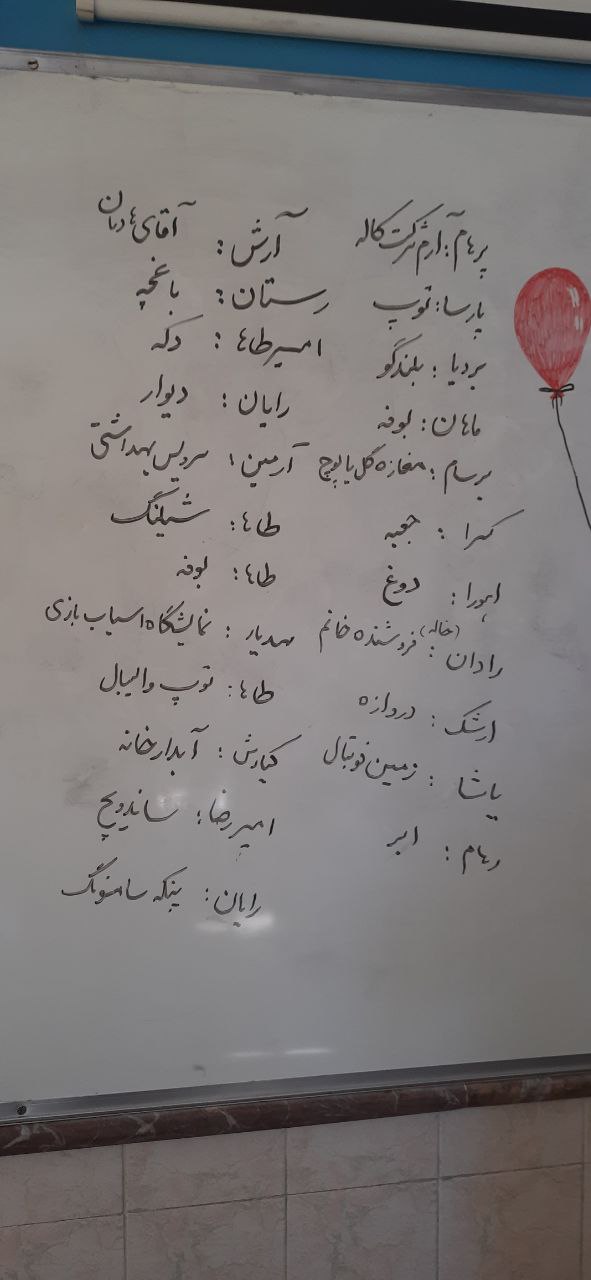 پرهام: آرم شرکت کاله
پارسا: توپ
بردیا: بلندگو
ماهان: بوفه
برسام: مغازه گل یا پوچ
کسرا: جعبه
اهورا: دوغ
رادان: فروشنده خانم (خاله)
ارشک: دروازه
یاشا: زمین فوتبال
رهام: ابر
آرش: آقای هادیان
رستان: باغچه
امیرطاها: دکه
رایان: دیوار
آرمین: سرویس بهداشتی
طاها: شیلنگ
طاها: بوفه
مهدیار: نمایشگاه اسباب بازی
طاها: توپ والیبال
کیارش: آبدارخانه
امیررضا: ساندویچ
رایان: پنکه سامسونگ